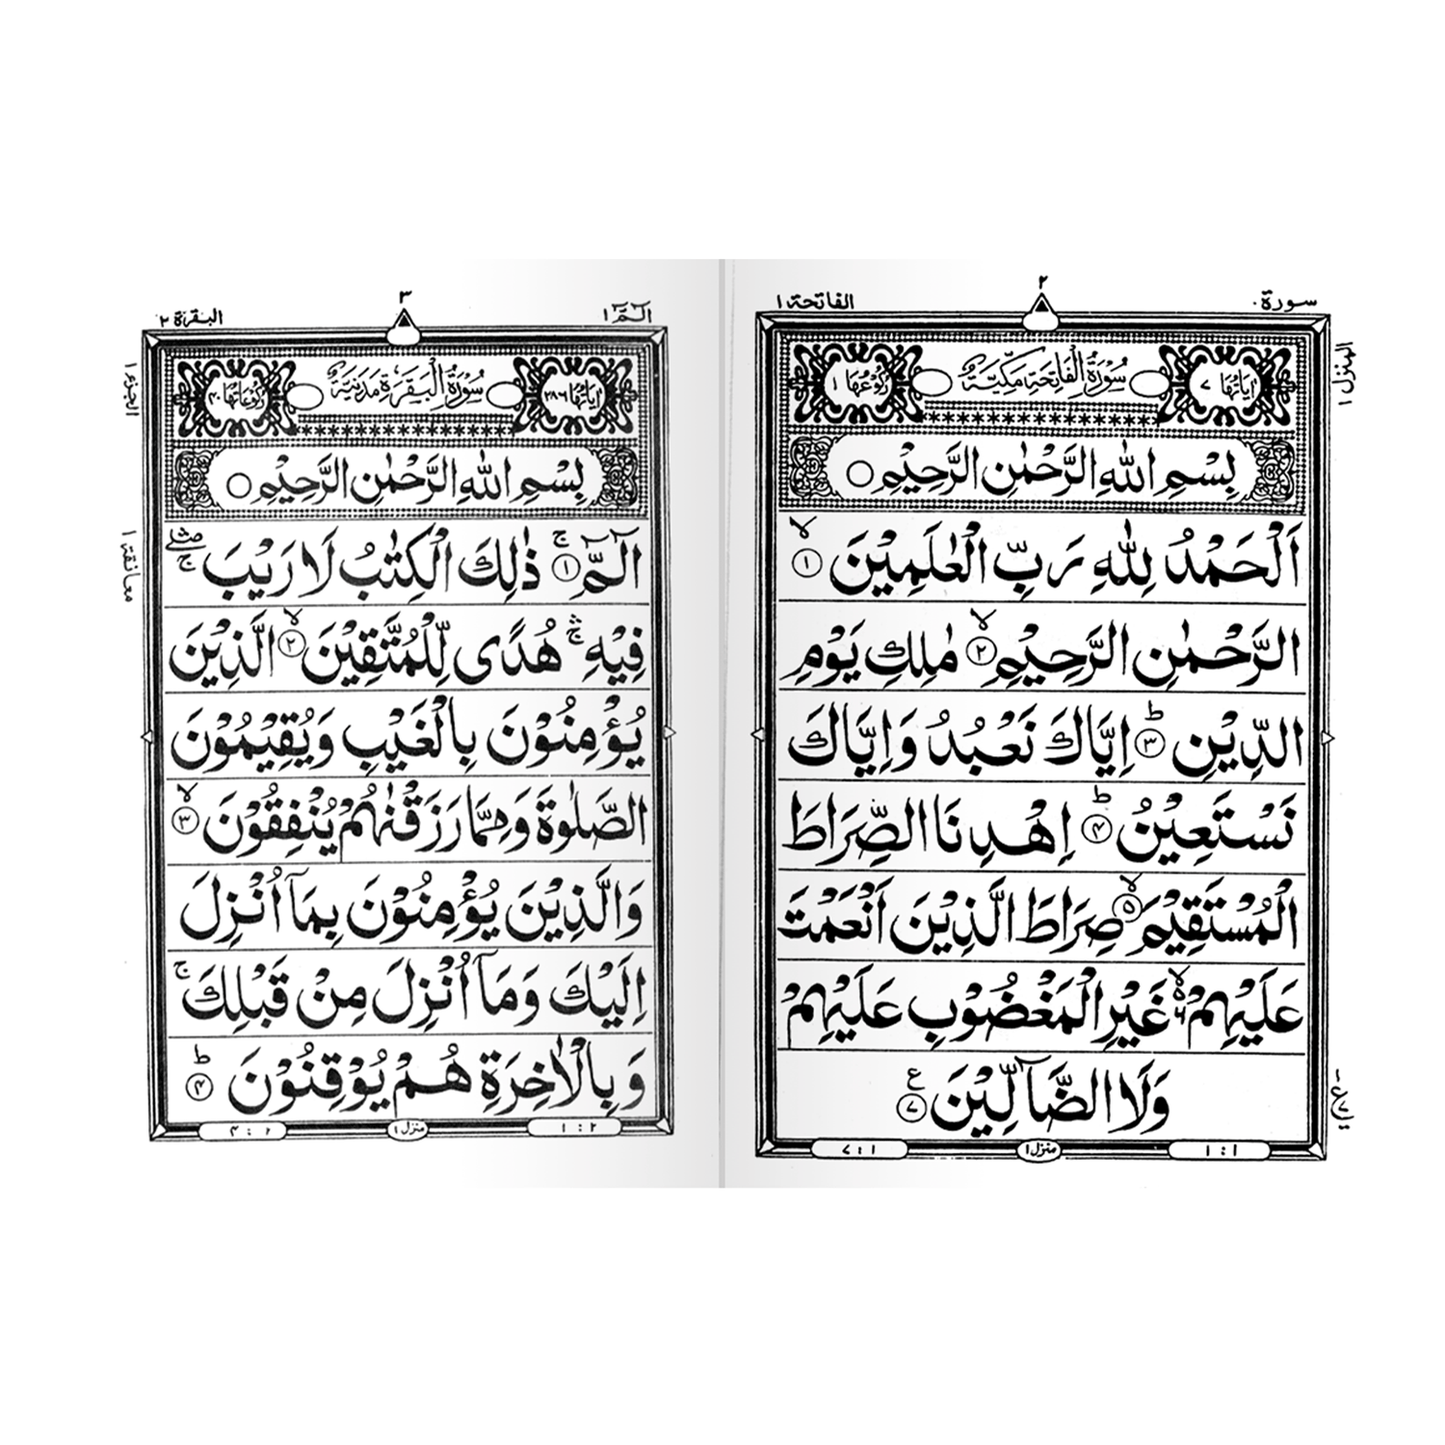 سورة
٢
الفاتحة ١
المنزل ١
اٰيَاتُهَا ٧
سُوْرَةُ الْفَاتِحَةِ مَكِّيَّةٌ
رُكُوْعُهَا ١
بِسْمِ اللّٰهِ الرَّحْمٰنِ الرَّحِيْمِ
اَلْحَمْدُ لِلّٰهِ رَبِّ الْعٰلَمِيْنَ ۙ ١
الرَّحْمٰنِ الرَّحِيْمِ ۙ ٢ مٰلِكِ يَوْمِ
الدِّيْنِ ؕ ٣ اِيَّاكَ نَعْبُدُ وَاِيَّاكَ
نَسْتَعِيْنُ ؕ ۴ اِهْدِنَا الصِّرَاطَ
الْمُسْتَقِيْمَ ۙ ۵ صِرَاطَ الَّذِيْنَ اَنْعَمْتَ
عَلَيْهِمْ ۙ ۶ غَيْرِ الْمَغْضُوْبِ عَلَيْهِمْ
وَلَا الضَّآلِّيْنَ ع ٧
١ : ١
منزل ١
١ : ٧
الٓمّٓ ١
٣
البقرة ٢
الجزء ١
اٰيَاتُهَا ٢٨٦
سُوْرَةُ الْبَقَرَةِ مَدَنِيَّةٌ
رُكُوْعَاتُهَا ۴٠
بِسْمِ اللّٰهِ الرَّحْمٰنِ الرَّحِيْمِ
معانقة ١
الٓمّٓ ۚ ١ ذٰلِكَ الْكِتٰبُ لَا رَيْبَ ۛۖۚ
فِيْهِ ۛۚ هُدًى لِّلْمُتَّقِيْنَ ۙ ٢ الَّذِيْنَ
يُؤْمِنُوْنَ بِالْغَيْبِ وَيُقِيْمُوْنَ
الصَّلٰوةَ وَمِمَّا رَزَقْنٰهُمْ يُنْفِقُوْنَ ۙ ٣
وَالَّذِيْنَ يُؤْمِنُوْنَ بِمَآ اُنْزِلَ
اِلَيْكَ وَمَآ اُنْزِلَ مِنْ قَبْلِكَ ۚ
وَبِالْاٰخِرَةِ هُمْ يُوْقِنُوْنَ ؕ ۴
٢ : ١
منزل ١
٢ : ۴